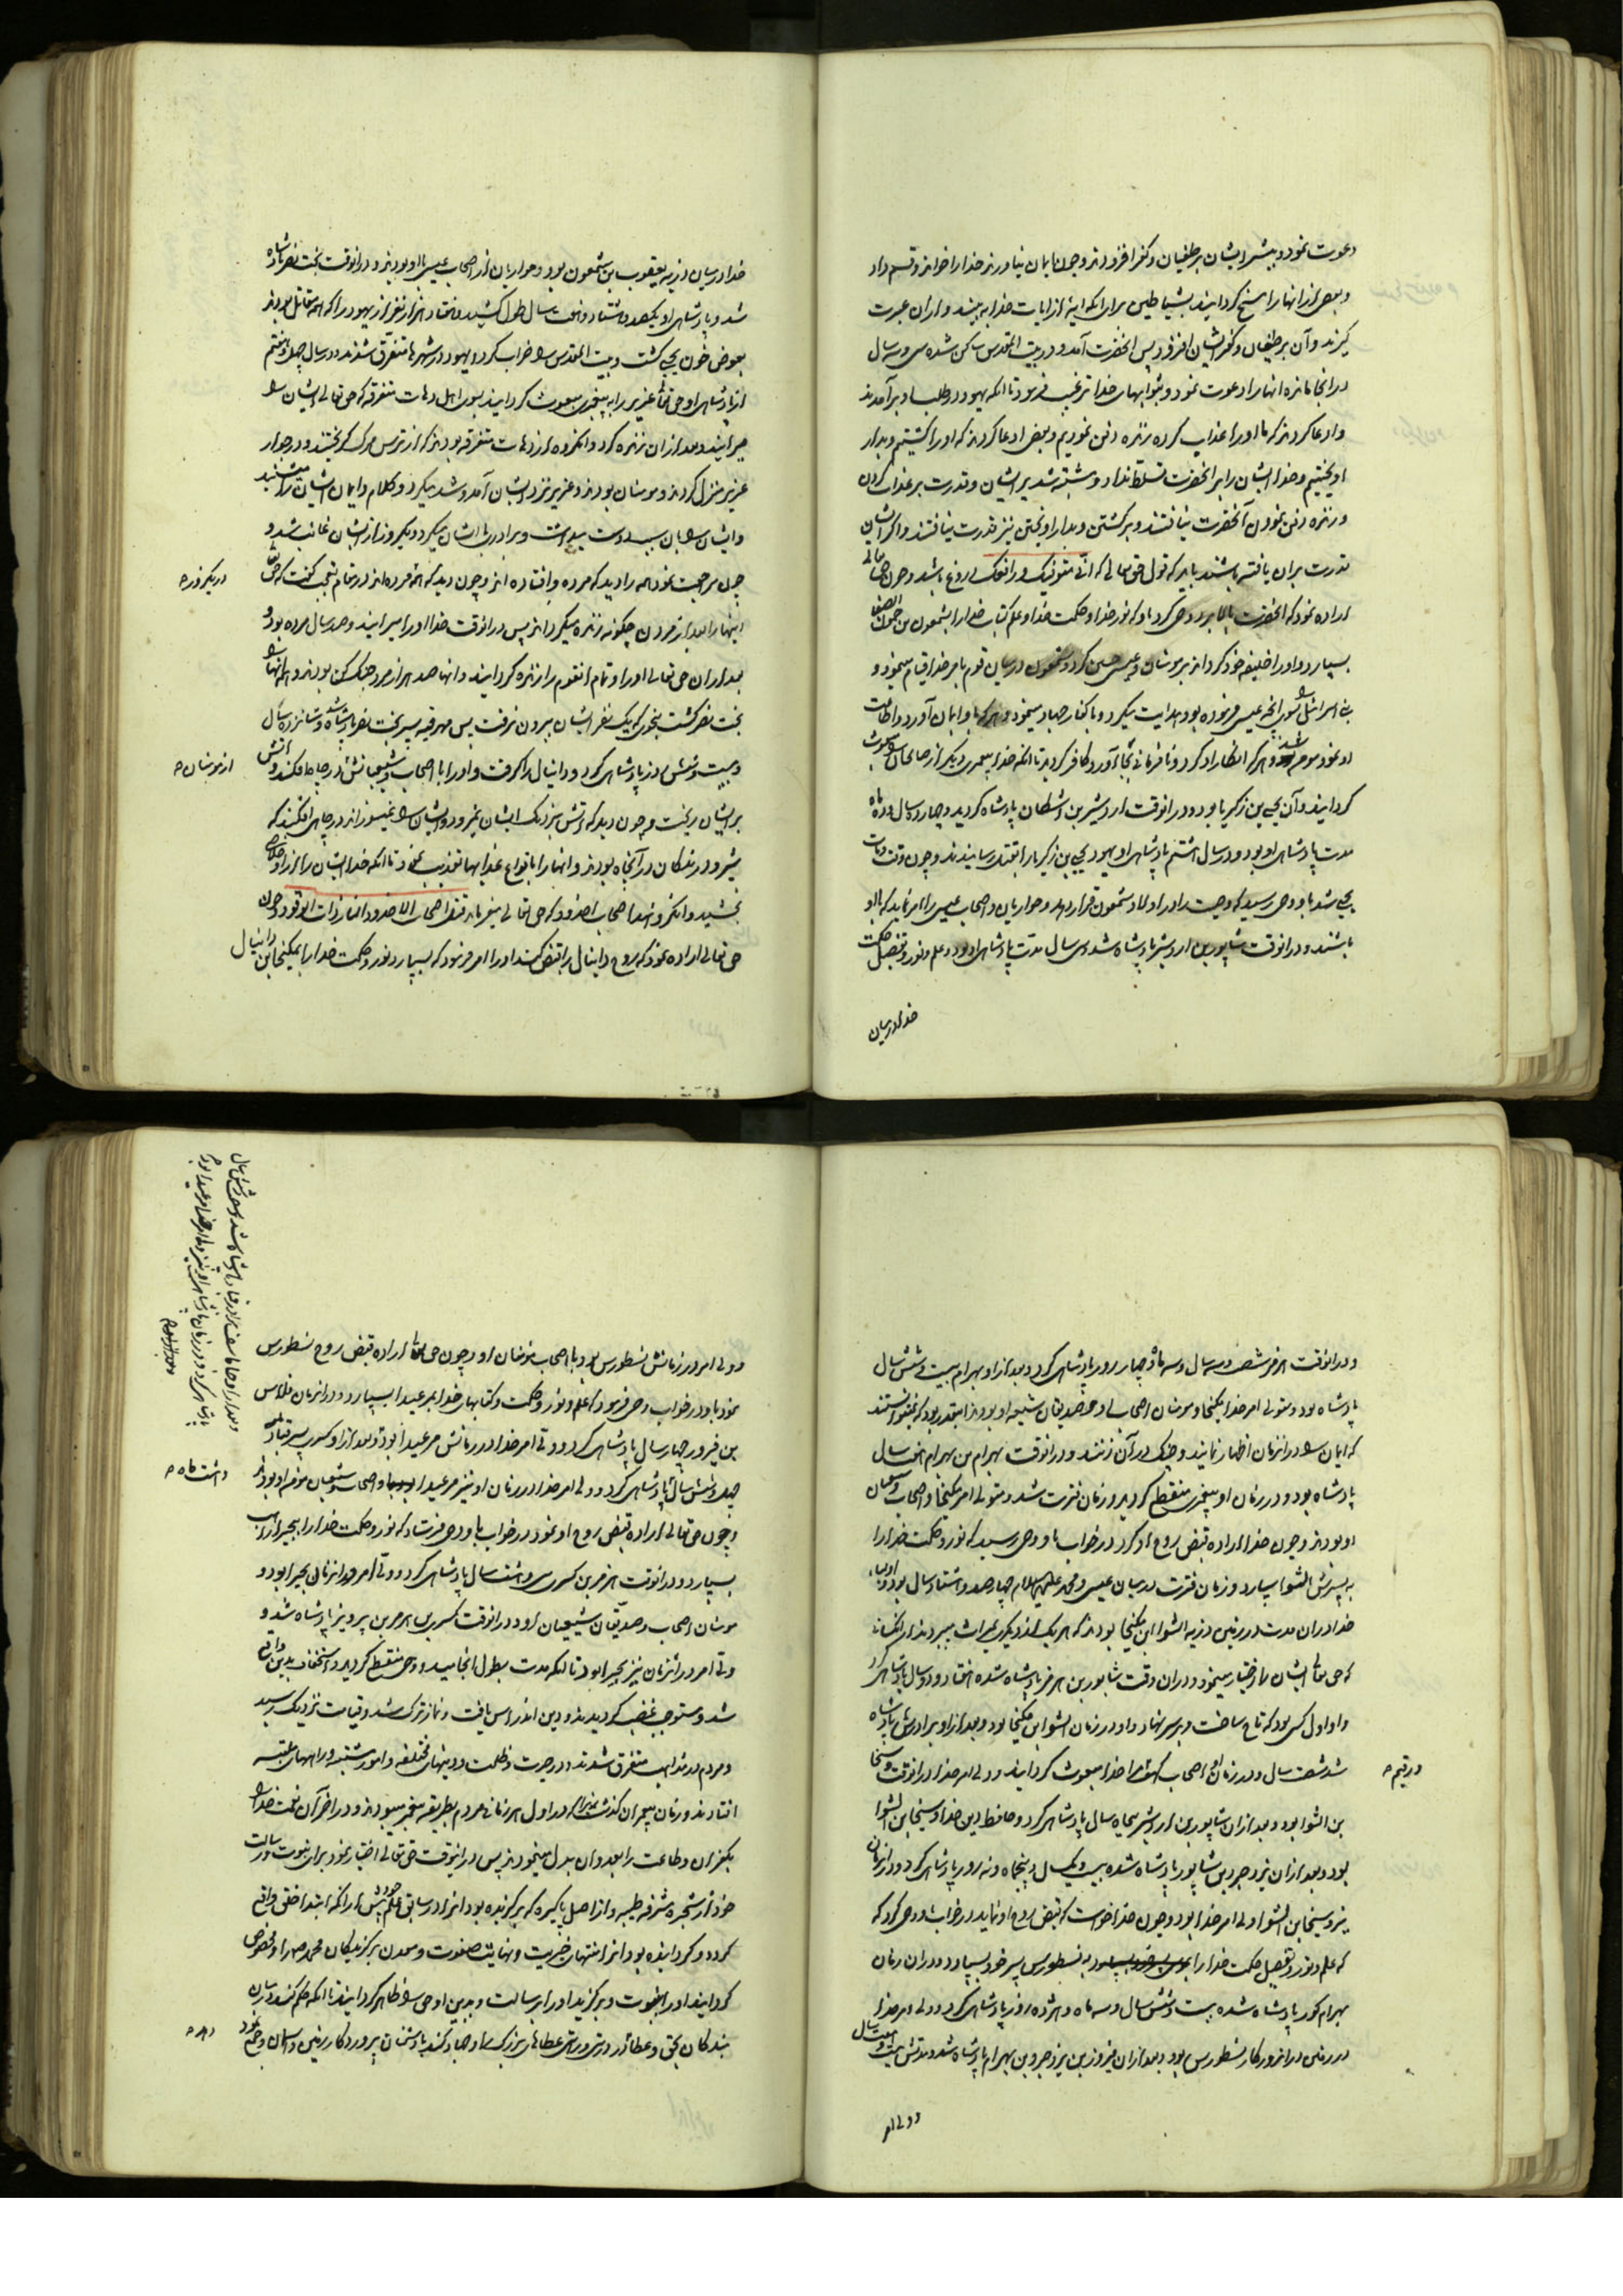 دعوت نمود و بیشتر ایشان بر طغیان و کفر افزودند و چون ایمان نیاوردند خدا را خواند و قسم داد
و بعضی از انها را مسخ کردانید بشیاطین برای انکه ایه از ایات خدا به بینند و از ان عبرت
کیرند و آن بر طغیان و کفر ایشان افزود پس انحضرت آمد و در بیت المقدس ساکن شده سی و سه سال
در انجا مانده انها را دعوت نمود و بثوابهای خدا ترغیب فرمود تا انکه یهود در طلب او برآمدند
و ادعا کردند که ما او را عذاب کرده زنده دفن نمودیم و بعضی ادعا کردند که او را کشتیم و بدار
اویختیم و خدا ایشان را بر انحضرت تسلط نداد و مشتبه شد بر ایشان و قدرت بر عذاب کردن
و زنده دفن نمودن آنحضرت نیافتند و بر کشتن و بدار اویختن نیز قدرت نیافتند و اکر ایشان
قدرت بران یافته باشند باید که قول حق تعالی که انی متوفیک و رافعک دروغ باشد و چون حق تعالی
اراده نمود که انحضرت را بالا برد وحی کرد باو که نور خدا و حکمت خدا و علم کتاب خدا را بشمعون بن حمون الصفا
بسپارد و او را خلیفه خود کرداند بر مومنان و عیسی چنین کرد و شمعون در میان قوم بامر خدا قیام مینمود و
بنی اسرائیل را بسوی انچه عیسی فرموده بود هدایت میکرد و با کفار جهاد مینمود و هر که باو ایمان آورد و اطاعت
او نمود مومن شد و هر که انکار او کرد و نافرمانی بجا آورد کافر کردید تا انکه خدا پیغمبری دیکر از صالحان را مبعوث
کردانید و آن یحیی بن زکریا بود و در انوقت اردشیر بن اشکان پادشاه کردید و چهارده سال و ده ماه
مدت پادشاهی او بود و در سال اشتم پادشاهی او یهود یحیی بن زکریا را بقتل رسانیدند و چون وقت وفات
یحیی شد باو وحی رسید که وصیت را در اولاد شمعون قرار دهد و حواریان و اصحاب عیسی را امر نماید که با او
باشند و در انوقت شاپور بن اردشیر پادشاه شد و سی سال مدت پادشاهی او بود و علم و نور و تفصیل حکمت
خدا در میان
خدا در میان ذریه یعقوب بن شمعون بود و حواریان از اصحاب عیسی با او بودند و در انوقت بخت نصر پادشاه
شد و پادشاهی او یکصد و هشتاد و هفت سال طول کشید و هفتاد هزار نفر از یهود را که مقاتل بودند
بعوض خون یحیی کشت و بیت المقدس را خراب کرد و یهود در شهرها متفرق شدند و در سال چهل و هفتم
از پادشاهی او حق تعالی عزیر را به پیغمبری مبعوث کردانید بسوی اهل دهات متفرقه که حق تعالی ایشان را
میرانید و بعد از ان زنده کرد و انکروه از دهات متفرقه بودند که از ترس مرک کریختند و در جوار
عزیر منزل کردند و مومنان بودند و عزیر نزد ایشان آمد و شد میکرد و کلام و ایمان ایشان را میشنید
و ایشان را بان سبب دوست میداشت و برادری با ایشان میکرد و یکروز از ایشان غایب شد و
چون مراجعت نمود همه را دید که مرده و افتاده اند و چون دید که همه مرده اند در مقام تعجب کفت که حق تعالی
اینها را بعد از مردن چکونه زنده میکرداند پس در انوقت خدا او را میرانید و صد سال مرده بود و
بعد از ان حق تعالی او را و تمام انقوم را زنده کردانید و انها صد هزار مرد جنک کن بودند و همه انها را
بخت نصر کشت بنحوی که یک نفر ایشان بیرون نرفت پس مهرقیه پسر بخت نصر پادشاه شد و شانزده سال
و بیست و شش روز پادشاهی کرد و دانیال را کرفت و او را با اصحاب و شیعیانش در چاه افکند و آتش
بر ایشان ریخت و چون دید که آتش نزدیک ایشان نمیرود و ایشان را نمیسوزاند در چاهی افکند که
شیر و درندکان در آنجا بودند و انها را بانواع عذابها تعذیب نمود تا انکه خدا ایشان را از او خلاصی
بخشید و انکروه اند اصحاب اخدود که حق تعالی میفرماید قتل اصحاب الاخدود النار ذات الوقود و چون
حق تعالی اراده نمود که روح دانیال را قبض کند او را امر فرمود که بسپارد نور و حکمت خدا را بمکیخا بن دانیال
در یکروز ص
از مومنان ص
و در انوقت هرمز شصت و سه سال و سه ماه و چهار روز پادشاهی کرد و بعد از او بهرام بیست و شش سال
پادشاه بود و متولی امر خدا مکیخا و مومنان اصحاب او و صدیقان شیعه او بودند انقدر بود که نمیتوانستند
که ایمان را در انزمان اظهار نمایند و چنک در آن زنند و در انوقت بهرام بن بهرام هفت سال
پادشاه بود و در زمان او پیغمبری منقطع کردید و زمان فترت شد و متولی امر مکیخا و اصحاب و شیعیان
او بودند و چون خدا اراده قبض روح او کرد در خواب باو وحی رسید که نور و حکمت خدا را
به پسرش انشوا سپارد و زمان فترت در میان عیسی و محمد علیهم السلام چهار صد و اشتاد سال بود و اولیاء
خدا در ان مدت در زمین ذریه انشوا ابن مکیخا بودند که هر یک از دیکری میراث میبردند از انکسانی
که حق تعالی ایشان را اختیار مینمود و در ان وقت شاپور بن هرمز پادشاه شده هفتاد و دو سال پادشاهی کرد
و او اول کسی بود که تاج ساخت و بر سر نهاد و او در زمان انشوا بن مکیخا بود و بعد از او برادرش پادشاه
شد شصت سال و در زمان او اصحاب کهف را خدا مبعوث کردانید و ولی امر خدا در انوقت دسیخا
بن انشوا بود و بعد از ان شاپور بن اردشیر پنجاه سال پادشاهی کرد و حافظ دین خدا دسیخا بن انشوا
بود و بعد از ان یزدجرد بن شاپور پادشاه شده بیست و یکسال و پنج ماه و نه روز پادشاهی کرد و در انزمان
نیز دسیخا بن انشوا ولی امر خدا بود و چون خدا خواست که قبض روح او نماید در خواب باو وحی کرد که
که علم و نور و تفصیل حکمت خدا را به نسطورس پسر خود بسپارد و در ان زمان
بهرام کور پادشاه شده بیست و شش سال و سه ماه و هژده روز پادشاهی کرد و ولی امر خدا
در زمین در انروزکار نسطورس بود و بعد از ان فیروز بن یزدجرد بن بهرام پادشاه شد و مدتش بیست و هفت سال
و ولی امر
و رقیم ص
و ولی امر در زمانش نسطورس بود با اصحاب مومنان او و چون حق تعالی اراده قبض روح نسطورس
نمود باو در خواب وحی فرمود که علم و نور و حکمت و کتابهای خدا بمرعیدا بسپارد و در انزمان فلاس
بن فیروز چهار سال پادشاهی کرد و ولی امر خدا در زمانش مرعیدا بود و بعد از او کسری پسر قباد
چهل و شش سال پادشاهی کرد و ولی امر خدا در زمان او نیز مرعیدا و اصحاب و شیعیان مومن او بودند
و چون حق تعالی اراده قبض روح او نمود در خواب باو وحی فرستاد که نور و حکمت خدا را ببحیرا راهب
بسپارد و در انوقت هرمز بن کسری سی و اشت سال پادشاهی کرد و ولی امر در انزمان بحیرا بود و
مومنان اصحاب و صدیقان شیعیان او و در انوقت کسری بن هرمز بن پرویز پادشاه شد و
ولی امر در انزمان نیز بحیرا بود تا انکه مدت بطول انجامید و وحی منقطع کردید و استخفاف بدین واقع
شد و مستوجب غضب کردیدند و دین اندراس یافت و نماز ترک شد و قیامت نزدیک رسید
و مردم در مذاهب متفرق شدند و در حیرت و ظلمت و دینهای مختلفه و امور مشتبه و راههای ملتبسه
افتادند و زمان پیغمبران کذشت در اول هر زمانی مردم بطریقه پیغمبر میبودند و در اخر آن نعمت خدا را
بکفران و طاعت را بعدوان بدل مینمودند پس در انوقت حق تعالی اختیار نمود برای نبوت و رسالت
خود از شجره مشرفه طیبه و از اصل پاکیزه که برکزیده بود انرا در سابق علم خود پیش از انکه ابتدا خلق واقع
کردد و کردانیده بود انرا منتهای خیریت و نهایت صفوت و معدن برکزیدکان محمد ص را و مخصوص
کردانید او را بنبوت و برکزید او را برسالت و بدین او حق را ظاهر کردانید تا انکه حکم کند در میان
بندکان بحق و جهاد کند با دشمنان پروردکار زمین و اسمان و جمع نمود
و اشت ماه ص